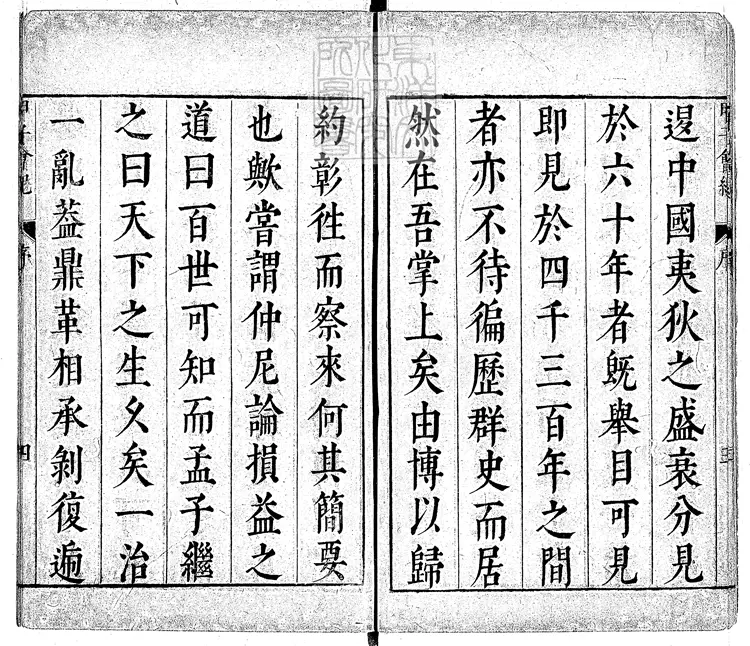 邊中國夷狄之盛衰分見
於六十年者既舉目可見
即見於四千三百年之間
者亦不待徧歷群史而居
然在吾掌上矣由博以歸
約彰徃而察來何其簡要
也歟嘗謂仲尼論損益之
道曰百世可知而孟子繼
之曰天下之生久矣一治
一亂葢鼎革相承剝復遞
甲子會紀
序
四